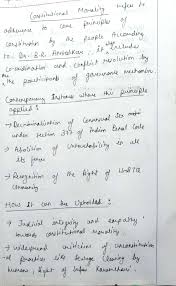 Constitutional Morality refers to
adherence to core principles of
constitution by the people. According
to Dr. B.R. Ambedkar, it includes
co-ordination and conflict resolution by
the practitionals of governance mechanism.
Contemporary Instances where this principle
applied :
→ Decriminalization of Consensual sex
under section 377 of Indian Penal Code
→ Abolition of Untouchability in all
its forms
→ Recognition of the Right of
Community
How It can be Upholded :
→ Judicial integrity and empathy
towards constitutional morality
→ widespread criticism of unconstitution
al practices like sewage cleaning by
humans,